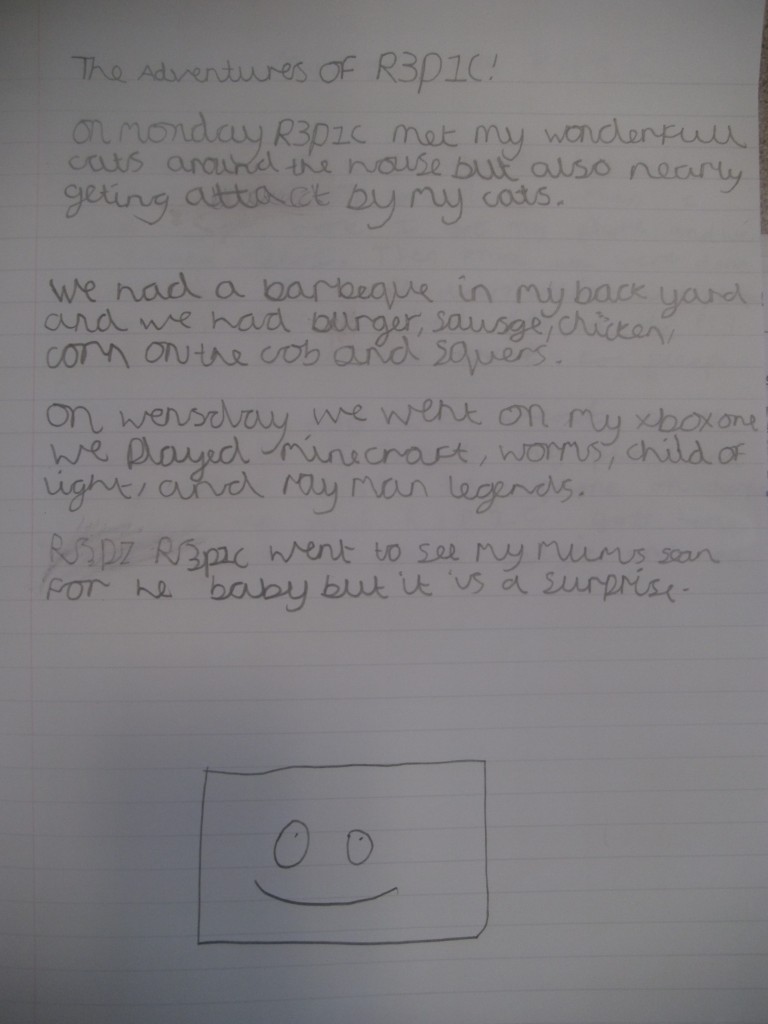 The Adventures OF R3P1C!
on monday R3P1C met my wonderfull
cats around the house but also nearly
geting attact by my cats.
we had a barbeque in my back yard
and we had burger, sausge, chicken,
corn on the cob and squers.
on wensday we went on my xbox one
we played minecraft, worms, child of
light, and ray man legends.
R3P1c went to see my mums scan
for he baby but it is a surprise.